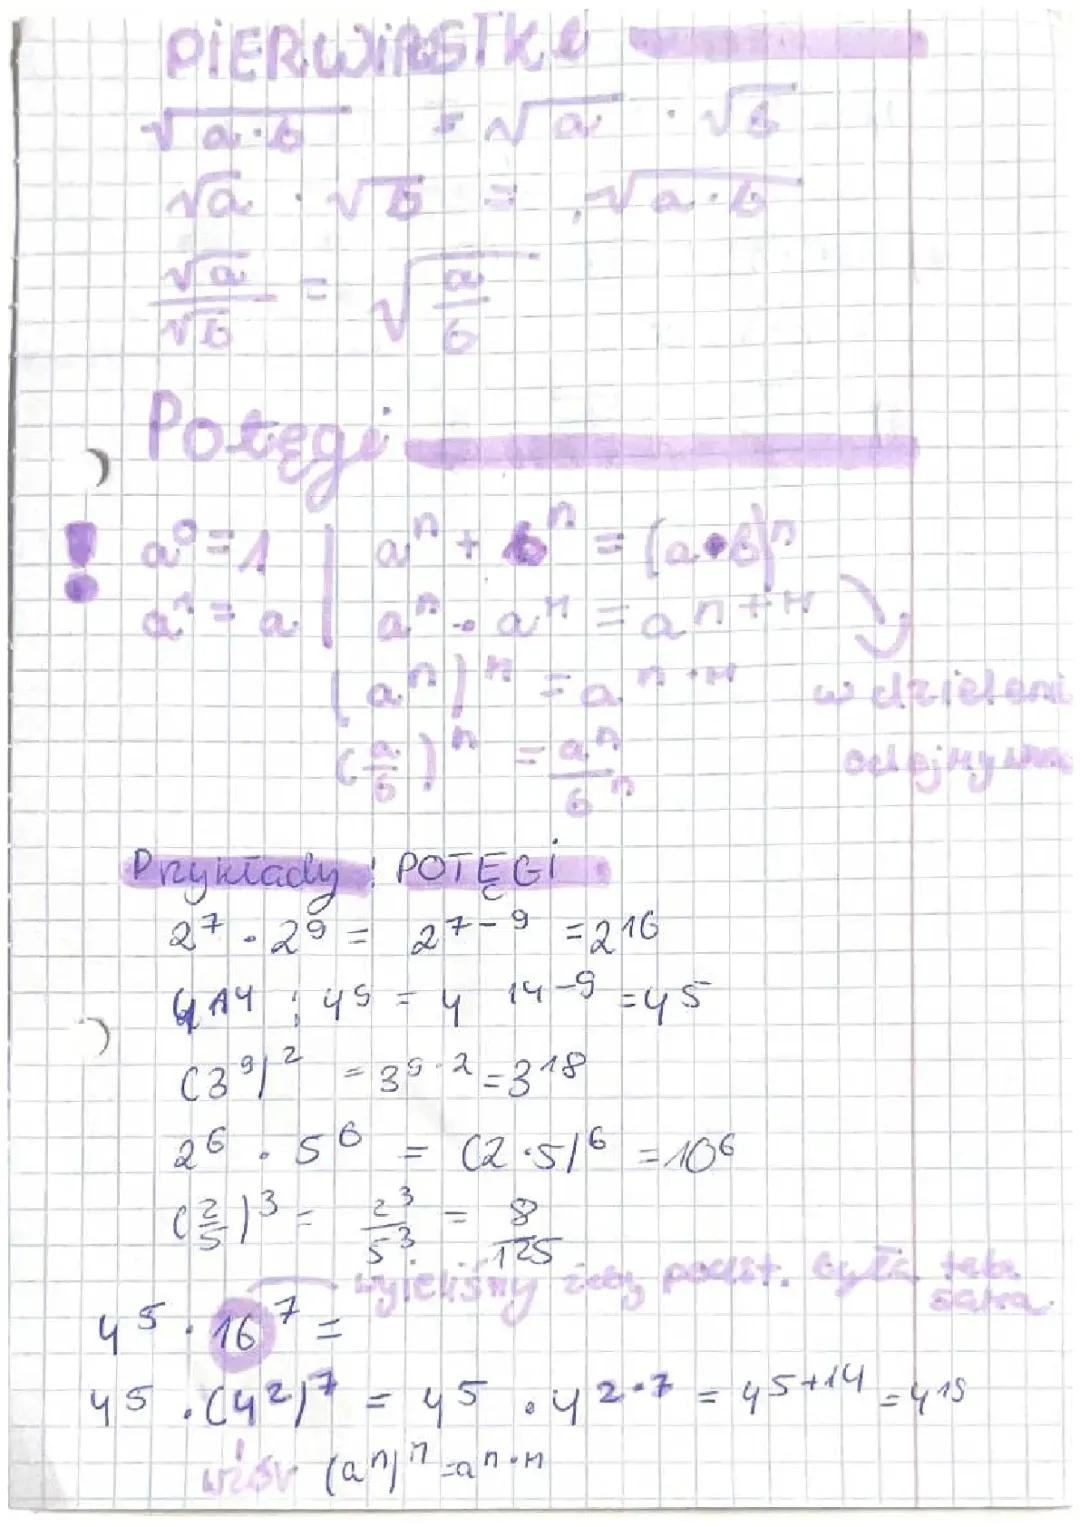 PIERWIASTKI
√a·b = √a · √b
√a · √b = √a·b
√a/√b = √a/b
Potęgi
! a⁰=1 | aⁿ + bⁿ = (a•b)ⁿ
a¹ = a | aⁿ · aᵐ = aⁿ⁺ᵐ
(aⁿ)ᵐ = aⁿ·ᵐ w dzieleni
(a/b)ⁿ = aⁿ/bⁿ odejmujemy
Przykłady: POTĘGI
2⁷ · 2⁹ = 2⁷⁻⁹ = 2¹⁶
4¹⁴ : 4⁹ = 4¹⁴⁻⁹ = 4⁵
(3⁹)² = 3⁹·² = 3¹⁸
2⁶ · 5⁶ = (2·5)⁶ = 10⁶
(2/5)³ = 2³/5³ = 8/125
wzieliśmy żeby podst. była taka sama
4⁵ · 16⁷ =
4⁵ · (4²)⁷ = 4⁵ · 4²·⁷ = 4⁵⁺¹⁴ = 4¹⁹
wzór (aⁿ)ᵐ = aⁿ·ᵐ